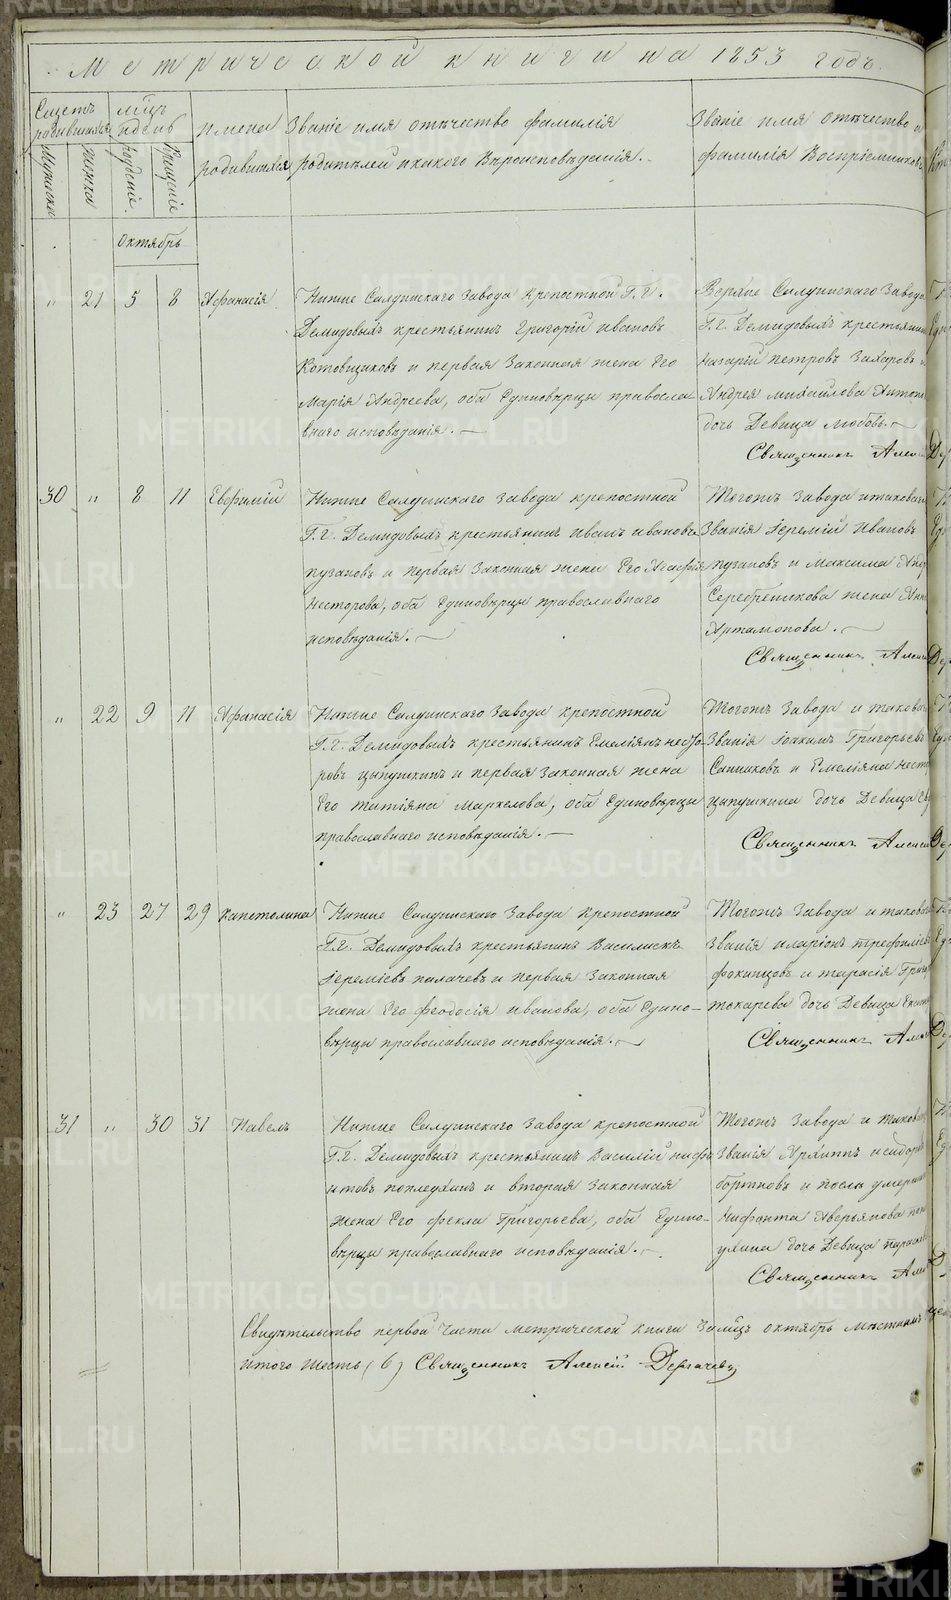 Метрической книги на 1853 годъ.
Счетъ родившихся
мѣсяцъ и день
Имена родившихся
Званіе имя отчество фамилія
родителей и какого вѣроисповѣданія.
Званіе имя отчество и
фамилія воспріемниковъ
Мужеска
женска
рожденіе
крещенія
Октябрь
" 21 5 8 Афанасія
Нижне Салдинскаго завода крепостной Г.г.
Демидовыхъ крестьянинъ Григорій Ивановъ
Котовщиковъ и первая законная жена его
Марія Андреева, оба единовѣрцы правосла-
внаго исповѣданія.
Верхне Салдинскаго завода
Г.г. Демидовыхъ крестьянинъ
Назарій Петровъ Захаровъ
Андрея Михайлова
дочь девица Любовь.
Священникъ
30 " 8 11 Евфимій
Нижне Салдинскаго завода крепостной
Г.г. Демидовыхъ крестьянинъ Иванъ Ивановъ
Пузановъ и первая законная жена его Агафія
Несторова, оба единовѣрцы православнаго
исповѣданія.
Тогожъ завода и таковаго
званія Іеремій Ивановъ
Пузановъ и Максима
Серебренникова жена Анна
Артамонова.
Священникъ
" 22 9 11 Афанасія
Нижне Салдинскаго завода крепостной
Г.г. Демидовыхъ крестьянинъ Емеліянъ Несто-
ровъ Цыпушкинъ и первая законная жена
его Татіяна Маркелова, оба единовѣрцы
православнаго исповѣданія.
Тогожъ завода и таковаго
званія Іоакимъ Григорьевъ
Санниковъ и Емеліяна
Цыпушкина дочь девица
Священникъ
" 23 27 29 Капетолина
Нижне Салдинскаго завода крепостной
Г.г. Демидовыхъ крестьянинъ Василискъ
Іереміевъ Палачевъ и первая законная
жена его Феодосія Иванова, оба едино-
вѣрцы православнаго исповѣданія.
Тогожъ завода и таковаго
званія Иларіонъ Трефиліевъ
Фоканцовъ и Тарасія
Токарева дочь девица
Священникъ
31 " 30 31 Павелъ
Нижне Салдинскаго завода крепостной
Г.г. Демидовыхъ крестьянинъ Василій Нифа
нтовъ Поплеухинъ и вторая законная
жена его Фекла Григорьева, оба едино-
вѣрцы православнаго исповѣданія.
Тогожъ завода и таковаго
званія Архиппъ Исидоровъ
Бортновъ и послѣ умершаго
Нифонта Аверьянова
дочь девица
Священникъ
Свидѣтельство первой части метрической книги за мѣсяцъ октябрь
Итого шесть (6) Священникъ Алексій Дерягачевъ
METRIKI.GASO-URAL.RU